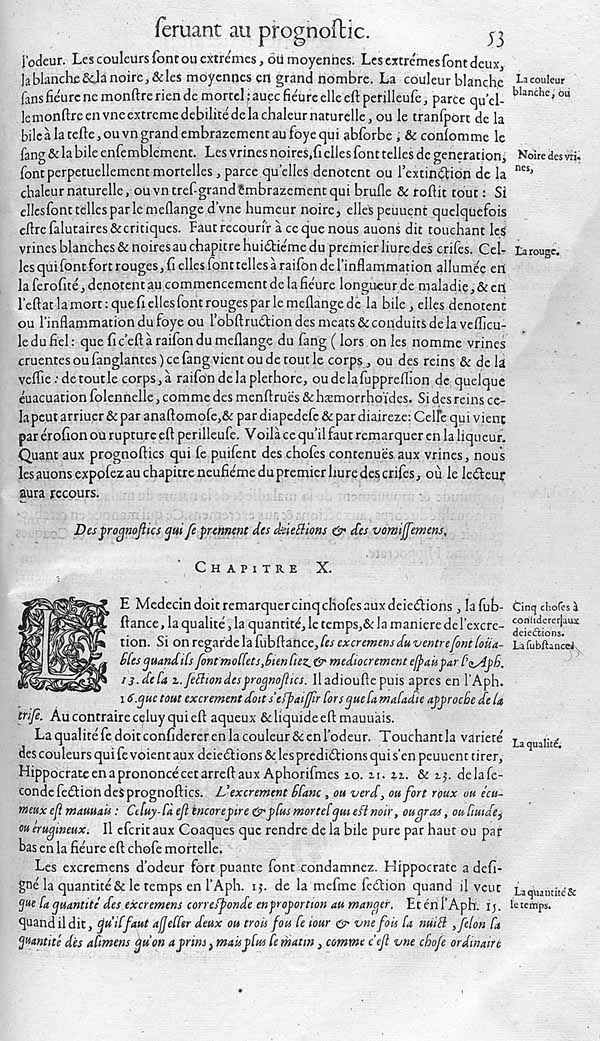 ſeruant au prognoſtic. 53
l'odeur. Les couleurs ſont ou extrémes, ou moyennes. Les extrémes ſont deux,
la blanche & la noire, & les moyennes en grand nombre. La couleur blanche
ſans fiéure ne monſtre rien de mortel; auec fiéure elle eſt perilleuſe, parce qu'el-
le monſtre en vne extreme debilité de la chaleur naturelle, ou le tranſport de la
bile à la teſte, ou vn grand embrazement au foye qui abſorbe, & conſomme le
ſang & la bile enſemblement. Les vrines noires, ſi elles ſont telles de generation,
ſont perpetuellement mortelles, parce qu'elles denotent ou l'extinction de la
chaleur naturelle, ou vn treſ-grand embrazement qui bruſle & roſtit tout : Si
elles ſont telles par le meſlange d'vne humeur noire, elles peuuent quelquefois
eſtre ſalutaires & critiques. Faut recourir à ce que nous auons dit touchant les
vrines blanches & noires au chapitre huictiéme du premier liure des criſes. Cel-
les qui ſont fort rouges, ſi elles ſont telles à raiſon de l'inflammation allumée en
la ſeroſité, denotent au commencement de la fiéure longueur de maladie, & en
l'eſtat la mort: que ſi elles ſont rouges par le meſlange de la bile, elles denotent
ou l'inflammation du foye ou l'obſtruction des meats & conduits de la veſſicu-
le du fiel: que ſi c'eſt à raiſon du meſlange du ſang (lors on les nomme vrines
cruentes ou ſanglantes) ce ſang vient ou de tout le corps, ou des reins & de la
veſſie: de tout le corps, à raiſon de la plethore, ou de la ſuppreſſion de quelque
éuacuation ſolennelle, comme des menſtruës & hæmorrhoïdes. Si des reins ce-
la peut arriuer & par anaſtomoſe, & par diapedeſe & par diaireze: Celle qui vient
par éroſion ou rupture eſt perilleuſe. Voilà ce qu'il faut remarquer en la liqueur.
Quant aux prognoſtics qui ſe puiſent des choſes contenuës aux vrines, nous
les auons expoſez au chapitre neufiéme du premier liure des criſes, où le lecteur
aura recours.
La couleur
blanche, ou
Noire des vri-
nes,
La rouge.
Des prognoſtics qui ſe prennent des deiections & des vomiſſemens.
CHAPITRE X.
LE Medecin doit remarquer cinq choſes aux deiections, la ſub-
ſtance, la qualité, la quantité, le temps, & la maniere de l'excre-
tion. Si on regarde la ſubſtance, les excremens du ventre ſont loüa-
bles quand ils ſont mollets, bien liez & mediocrement eſpais par l'Aph.
13. de la 2. ſection des prognoſtics. Il adiouſte puis apres en l'Aph.
16. que tout excrement doit s'eſpaiſſir lors que la maladie approche de la
criſe. Au contraire celuy qui eſt aqueux & liquide eſt mauuais.
La qualité ſe doit conſiderer en la couleur & en l'odeur. Touchant la varieté
des couleurs qui ſe voient aux deiections & les predictions qui s'en peuuent tirer,
Hippocrate en a prononcé cet arreſt aux Aphoriſmes 20. 21. 22. & 23. de la ſe-
conde ſection des prognoſtics. L'excrement blanc, ou verd, ou fort roux ou écu-
meux eſt mauuais : Celuy-là eſt encore pire & plus mortel qui eſt noir, ou gras, ou liuide,
ou érugineux. Il eſcrit aux Coaques que rendre de la bile pure par haut ou par
bas en la fiéure eſt choſe mortelle.
Les excremens d'odeur fort puante ſont condamnez. Hippocrate a deſi-
gné la quantité & le temps en l'Aph. 13. de la meſme ſection quand il veut
que la quantité des excremens correſponde en proportion au manger. Et en l'Aph. 15.
quand il dit, qu'il faut aſſeller deux ou trois fou le iour & vne fois la nuict, ſelon la
quantité des alimens qu'on a prins, mais plus le matin, comme c'eſt vne choſe ordinaire
Cinq choſes à
conſiderer aux
deiections.
La ſubſtance.
La qualité.
La quantité &
le temps.